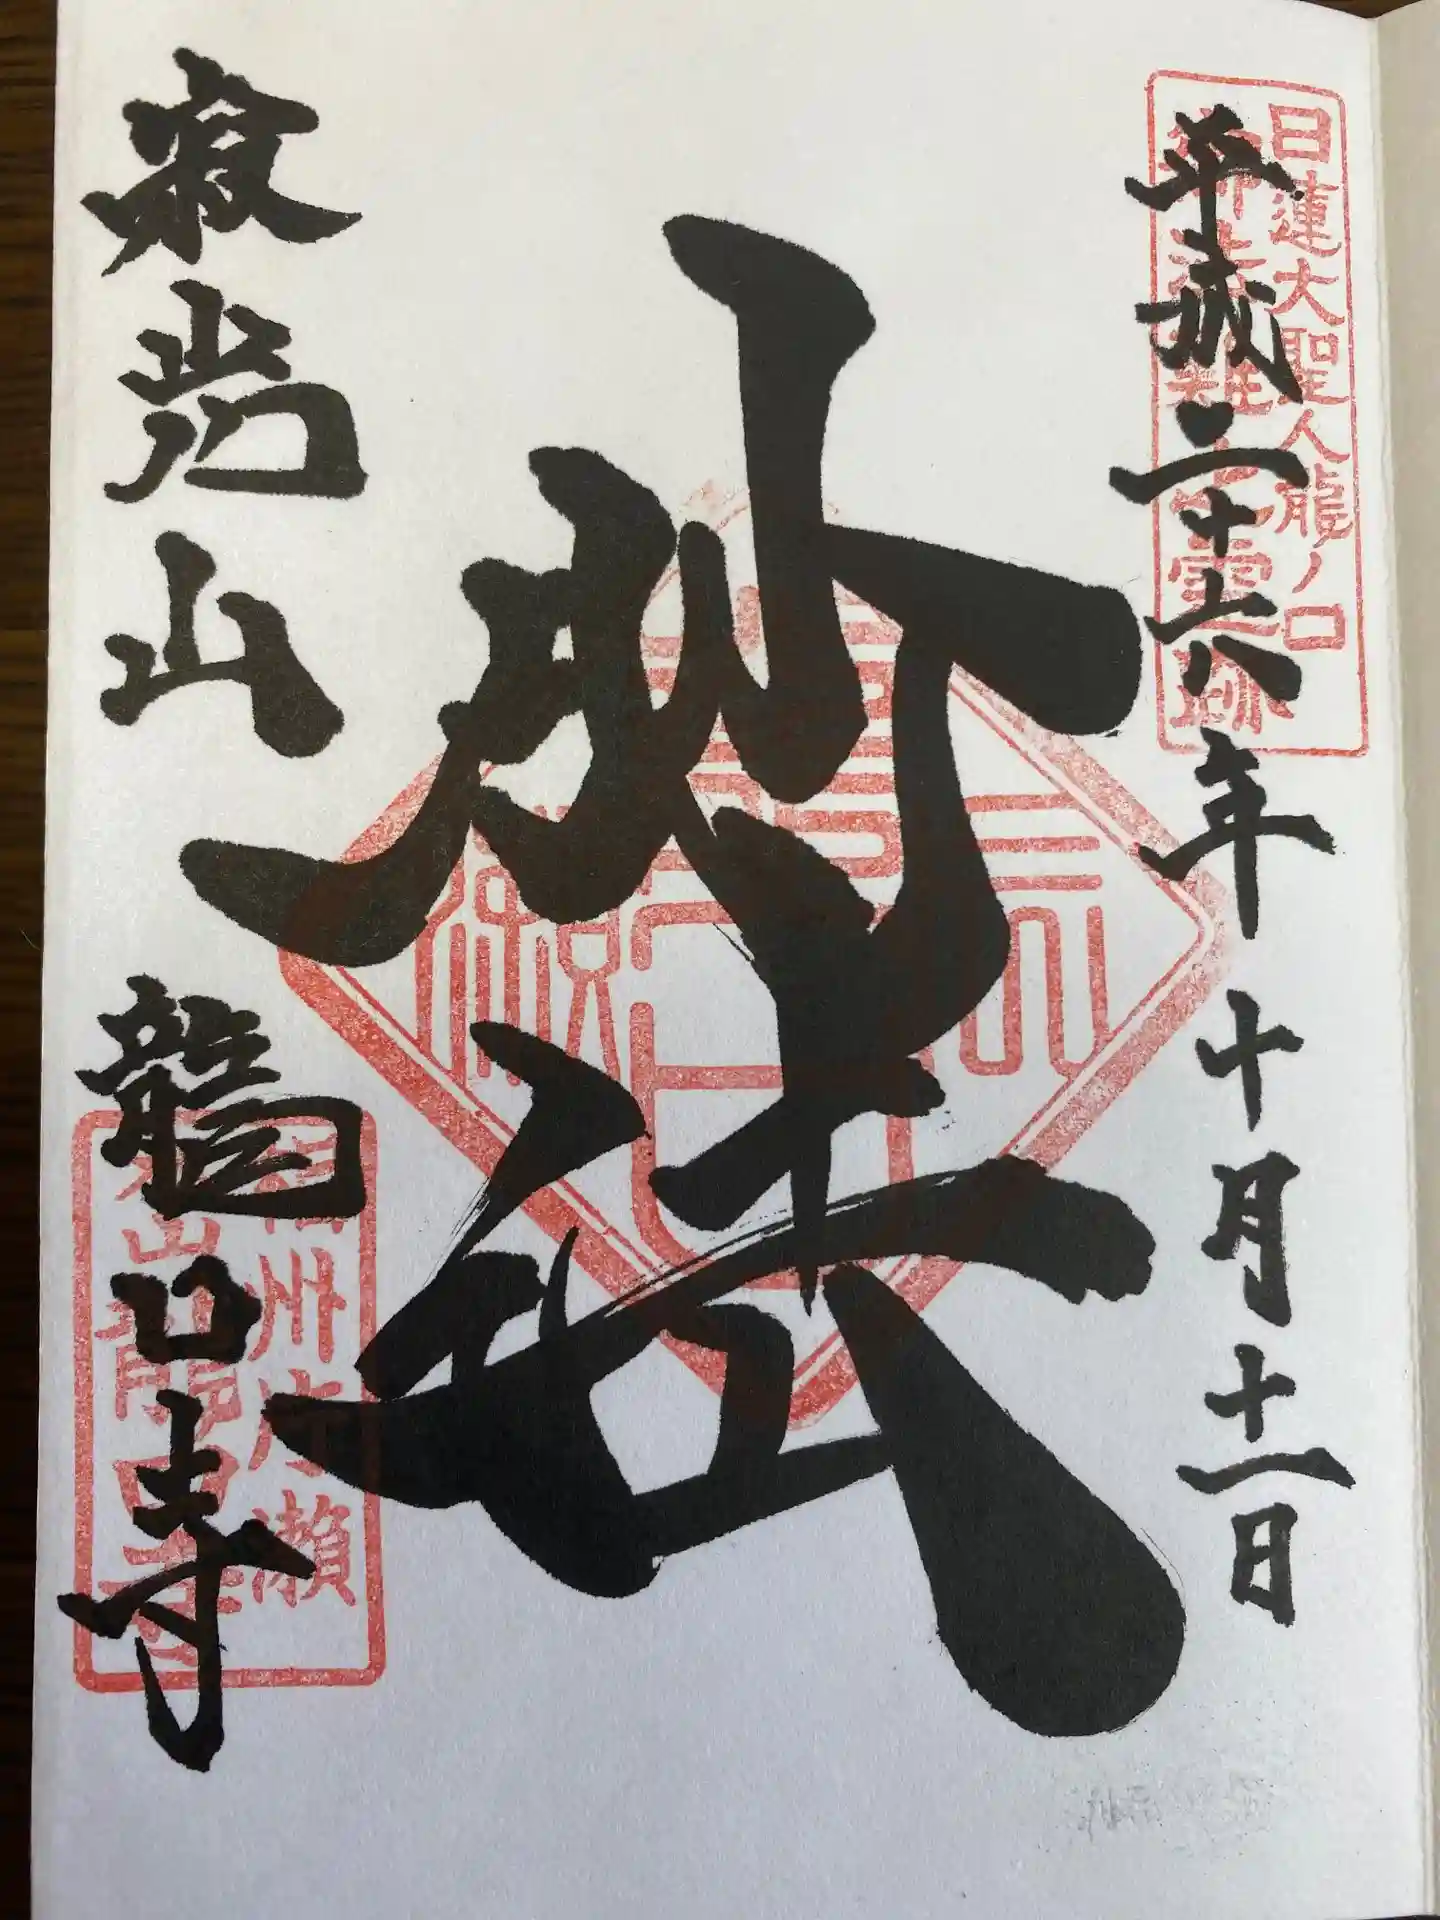 平成二十八年十月十一日
日蓮大聖人龍ノ口
御法難之霊跡
妙法
寂光山
龍口寺
相州片瀬
本山龍口寺